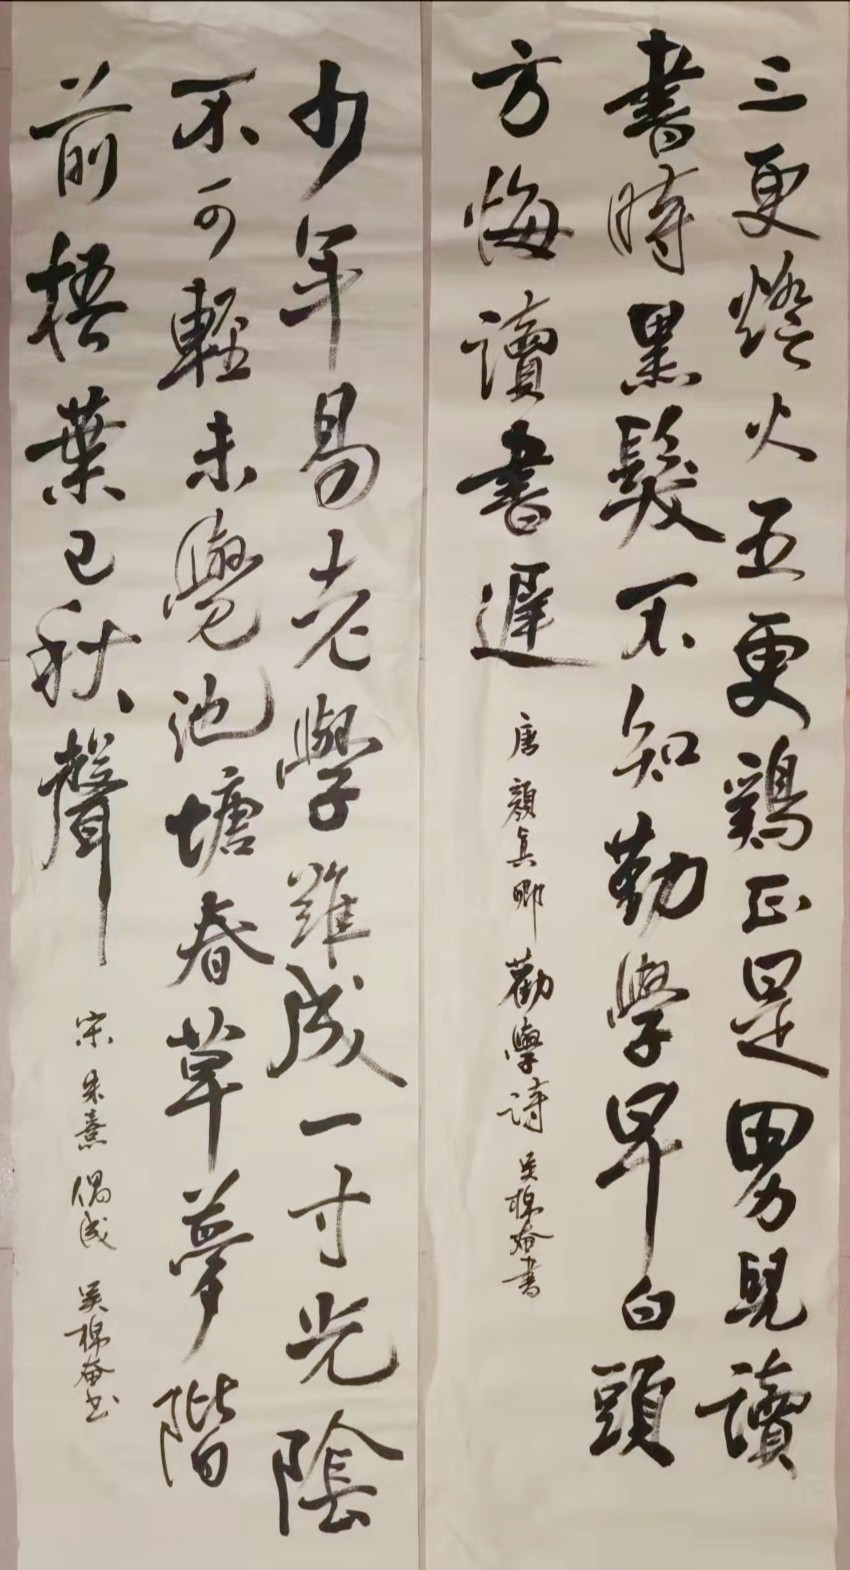 三更燈火五更鷄正是男兒讀
書時黑髮不知勤學早白頭
方悔讀書遲
唐顏真卿勸學詩吴棉奋書
少年易老學難成一寸光陰
不可輕未覺池塘春草夢階
前梧葉已秋聲
宋朱熹偶成吴棉奋书